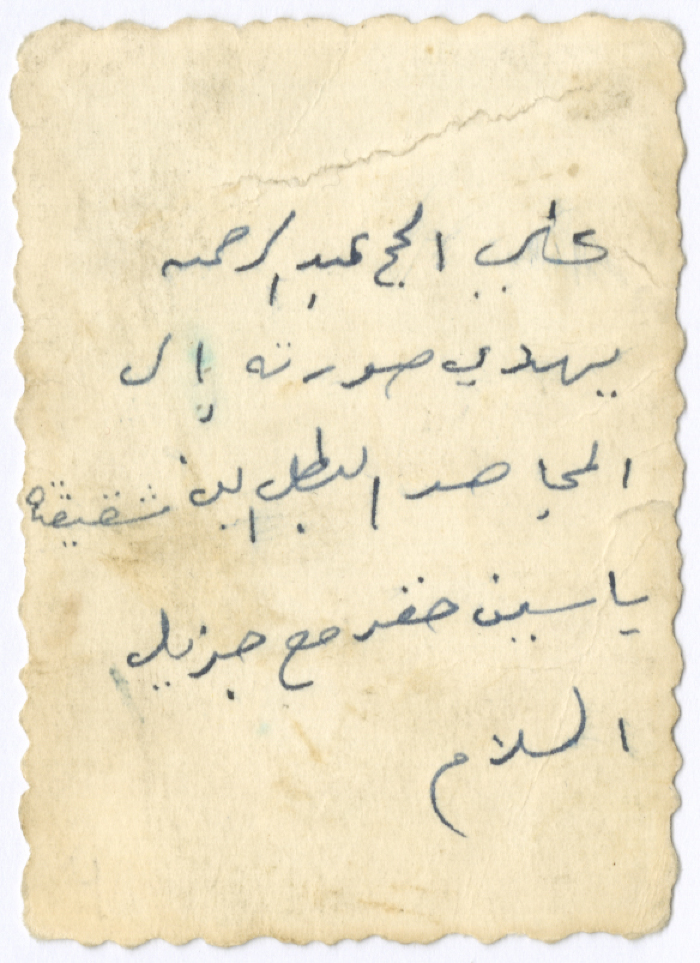 علي الحج عبد الرحمن
يهدي صورته إلى
المجاهد البطل ابن شقيقته
ياسين خضر مع جزيل
السلام